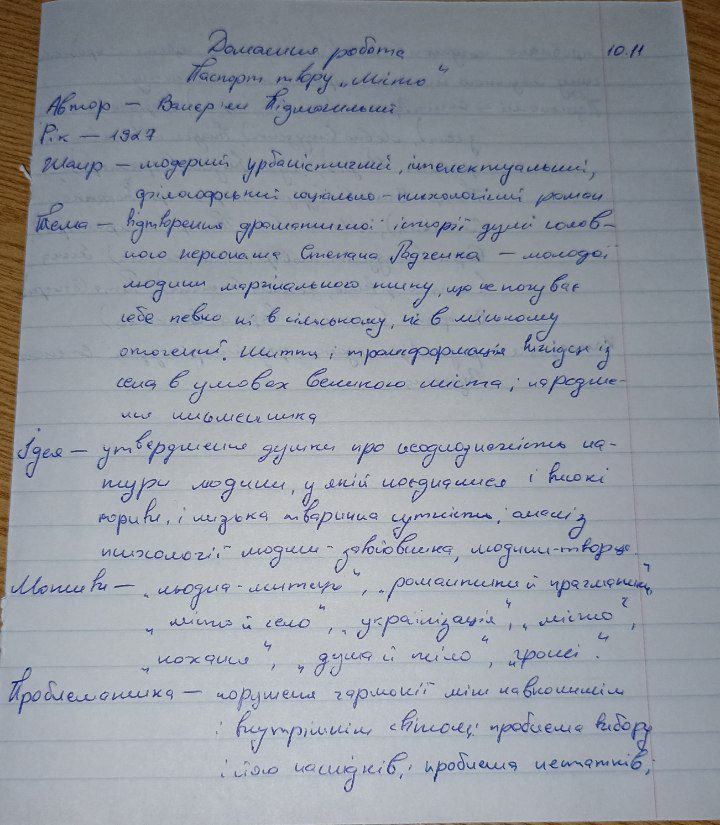 Домашня робота 10.11
Паспорт твору „Місто"
Автор – Валер'ян Підмогильний
Рік – 1927
Жанр – модерний урбаністичний, інтелектуальний,
філософський соціально-психологічний роман
Тема – відтворення драматичної історії душі голов-
ного персонажа Степана Радченка – молодої
людини маргінального типу, що не почуває
себе певно ні в сільському, ні в міському
оточенні. Життя і трансформація вихідця із
села в умовах великого міста; народже-
ння письменника
Ідея – утвердження думки про неоднозначність на-
тури людини, у якій поєдналися і високі
пориви, і низька тваринна сутність, аналіз
психології людини-завойовника, людини-творця.
Мотиви – „людина-митець", „романтики й прагматики",
„місто й село", „українізація", „місто",
„кохання", „душа й тіло", „гроші".
Проблематика – порушення гармонії між навколишнім
і внутрішнім світом; проблема вибору
і його наслідків; проблема нестатків;